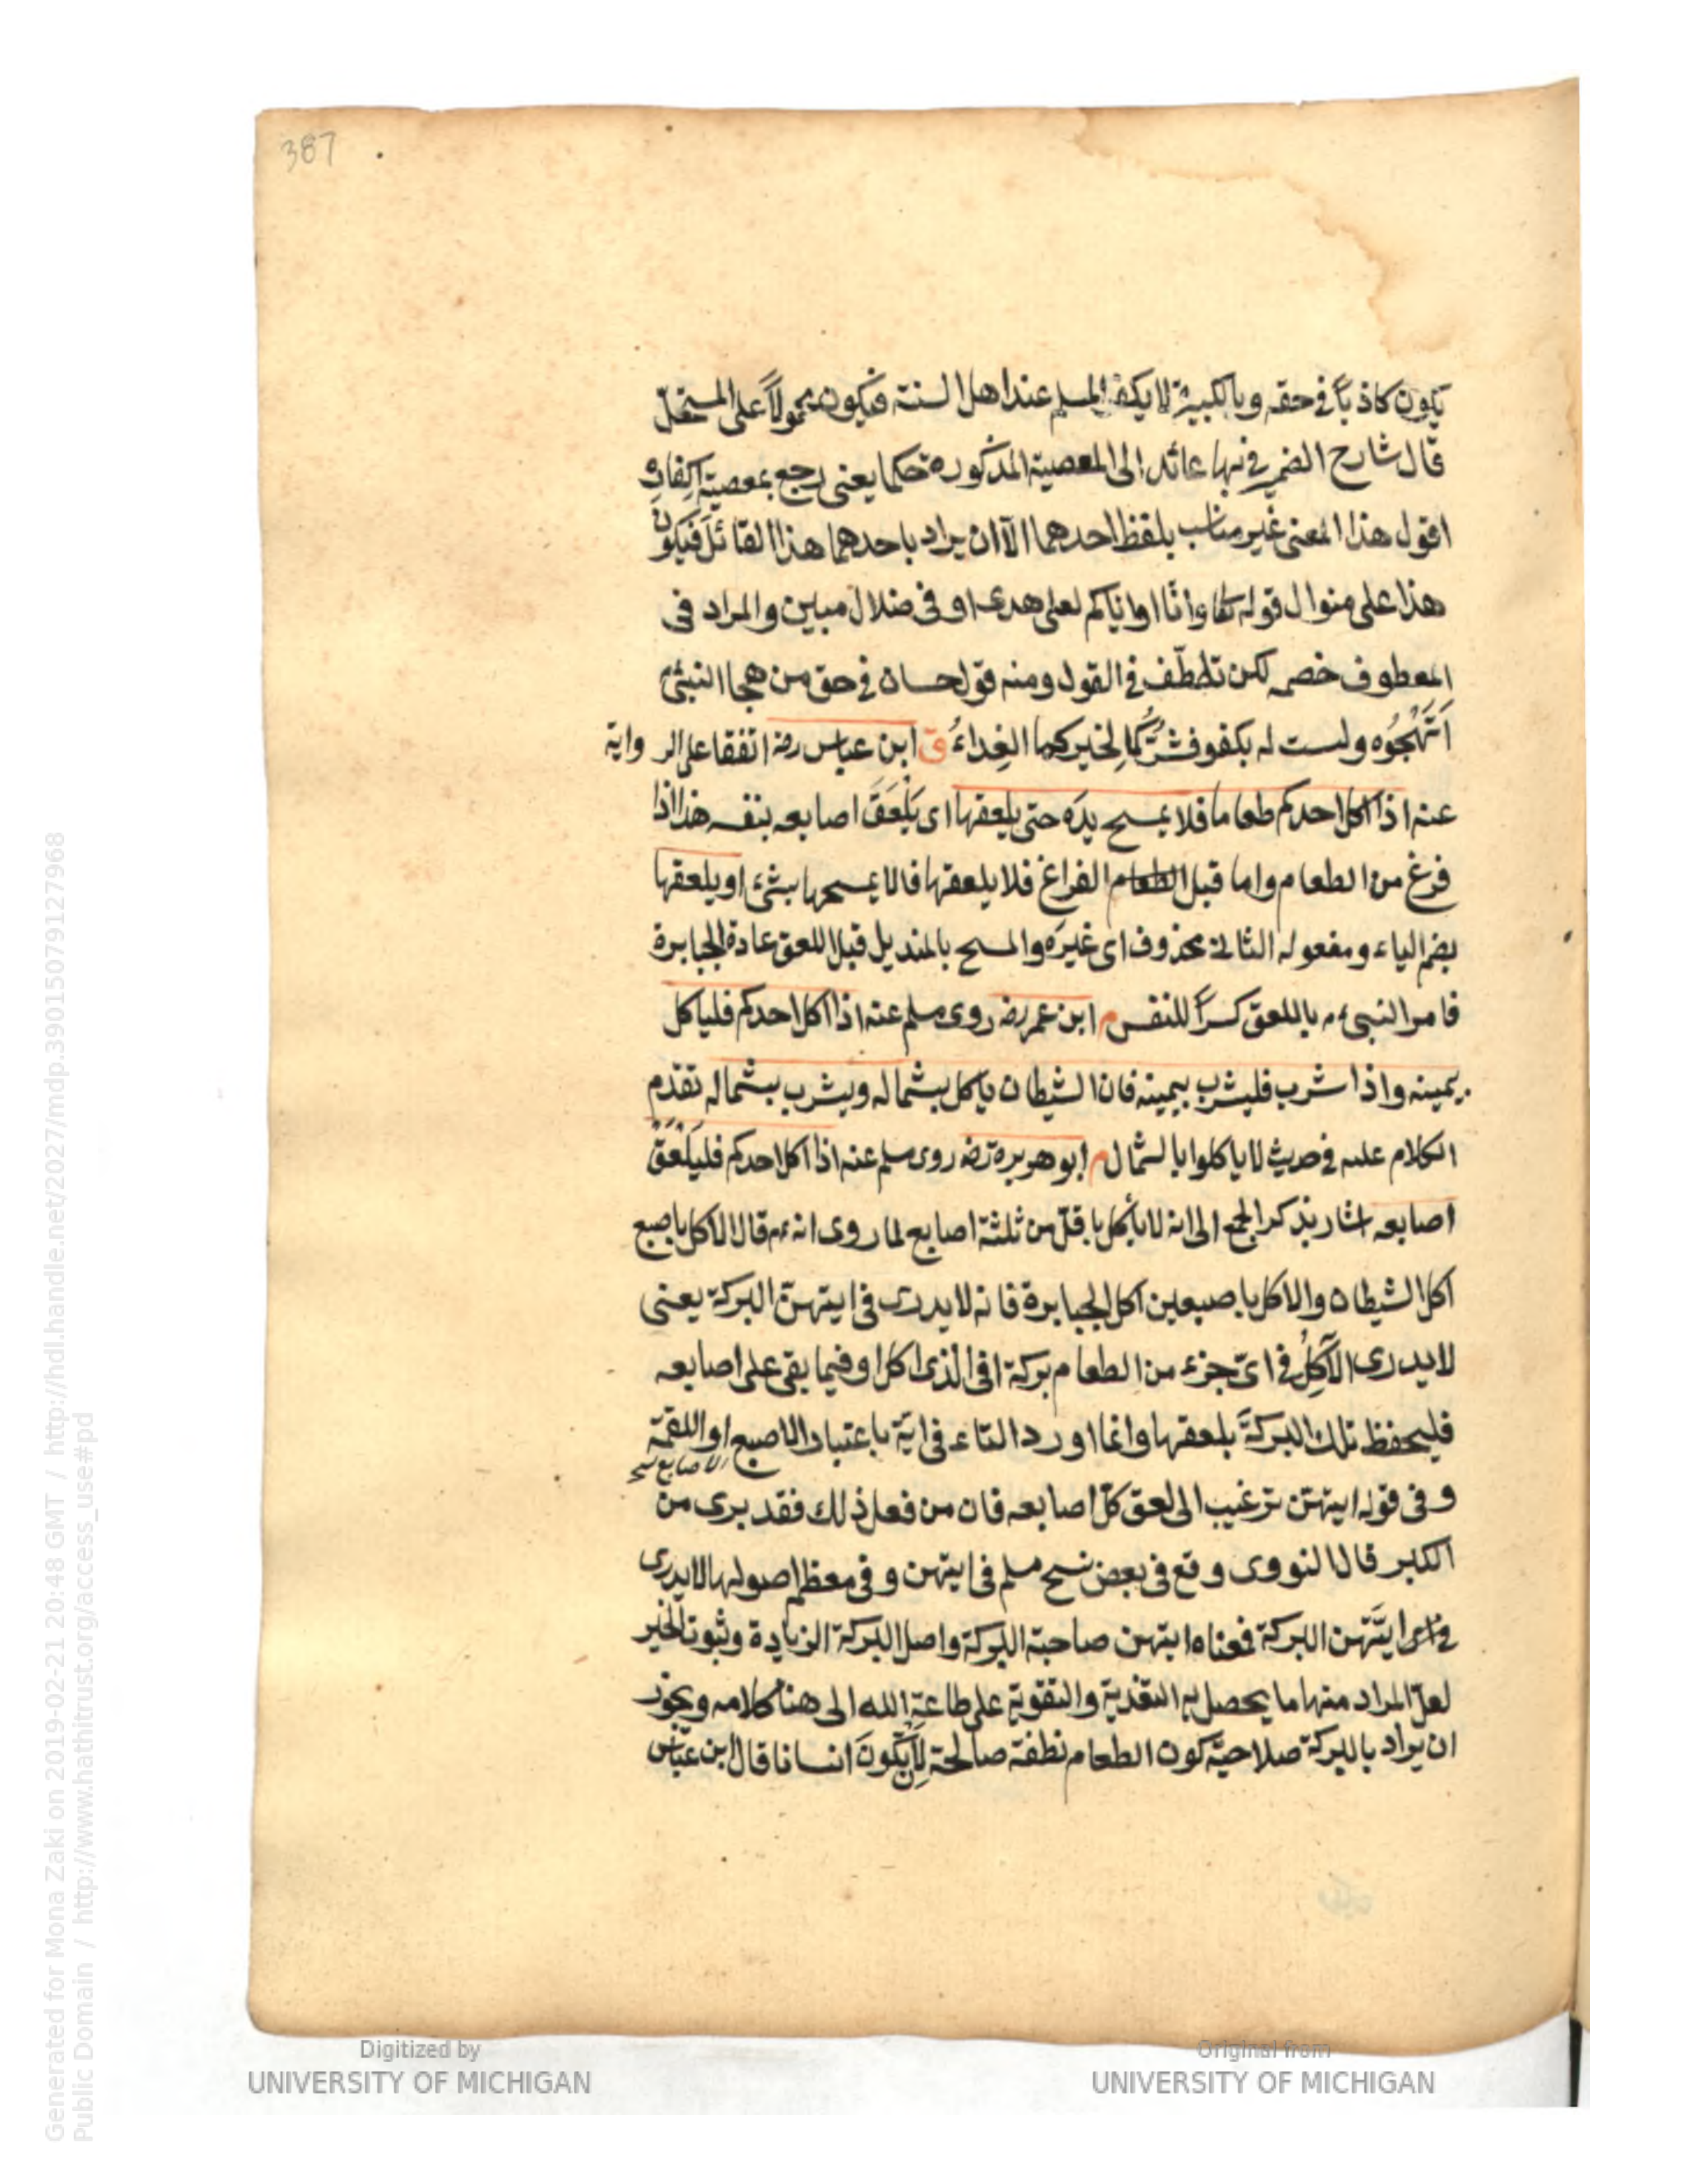 387
يكون كاذباً في حقه وبالكبيرة لا يكفر المسلم عند اهل السنة فيكون محمولاً على المستحل
قال شارح الضمير في بها عائد الى المعصية المذكورة حكما يعني رجع بمعصية اكفاره
اقول هذا المعنى غير مناسب بلفظ احدهما الّا ان يراد باحدهما هذا القائل فيكون
هذا على منوال قوله تعا وانّا او اياكم لعلى هدى او في ضلال مبين والمراد في
المعطوف خصمه لكن تلطّف في القول ومنه قول حسان في حق من هجا النبيّ م
اَتَهْجُوه ولست له بكفو فشرُّكُما لِخيركما الفِداءُ ق ابن عباس رضه اتفقا على الرواية
عنه اذا اكل احدكم طعاما فلا يمسح يدَه حتى يلعقها اى يَلْعَقَ اصابعه بنفسه هذا اذا
فرغ من الطعام واما قبل الطعام الفراغ فلا يلعقها فالا يمسحها بشئ او يلعقها
بضم الياء ومفعوله الثاني محذوف اى غيرَه والمسح بالمنديل قبل اللعق عادة الجبابرة
فامر النبي ءم باللعق كسرًا للنفس م ابن عمر رضه روى مسلم عنه اذا اكل احدكم فلياكل
بيمينه واذا شرب فليشرب بيمينه فان الشيطان ياكل بشماله ويشرب بشماله تقدّم
الكلام عليه في حديث لا ياكلوا بالشمال م ابو هريرة رضه روى مسلم عنه اذا اكل احدكم فليَلْعَقْ
اصابعه اشار بذكر الجمع الى انه لا يأكل باقلّ من ثلثة اصابع لما روى انه ءم قال الاكل باصبع
اكل الشيطان والاكل باصبعين اكل الجبابرة فانه لا يدرى في ايتهنّ البركة يعني
لا يدرى الآكِلُ في اىّ جزء من الطعام بركة افي الذى اكل او فيما بقى على اصابعه
فليحفظ تلك البركةَ بلعقها وانما اورد التاء في اية باعتبار الاصبع او اللقمة
الاصابع نسخ
وفي قوله ايتهن ترغيب الى لعق كلّ اصابعه فان من فعل ذلك فقد برى من
الكبر قال النووى وقع في بعض نسخ مسلم في ايتهن وفي معظم اصولها لا يدرى
ايَّتهن البركة فمعناه ايتهن صاحبة البركة واصل البركة الزيادة وثبوت الخير
لعلّ المراد منها ما يحصل به التغذية والتقوية على طاعة الله الى هنا كلامه ويجوز
ان يراد بالبركة صلاحيّة كون الطعام نطفة صالحة لِأَن يَكُونَ انسانا قال ابن عبّاس
Generated for Mona Zaki on 2019-02-21 20:48 GMT / http://hdl.handle.net/2027/mdp.39015079127968
Public Domain / http://www.hathitrust.org/access_use#pd
Digitized by
UNIVERSITY OF MICHIGAN
Original from
UNIVERSITY OF MICHIGAN